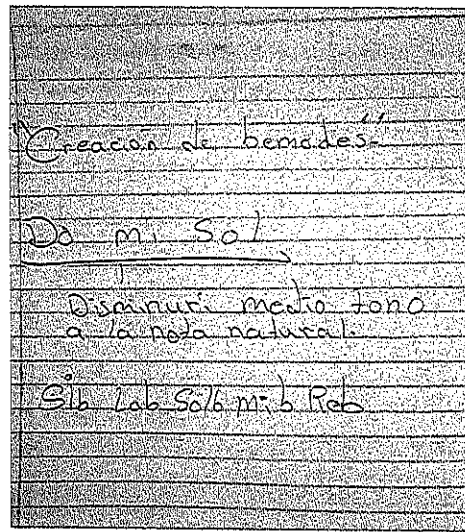 "Creación de bemodes"
Do mi Sol
Disminuri medio tono
a la nota natural.
Sib Lab Solb mib Reb